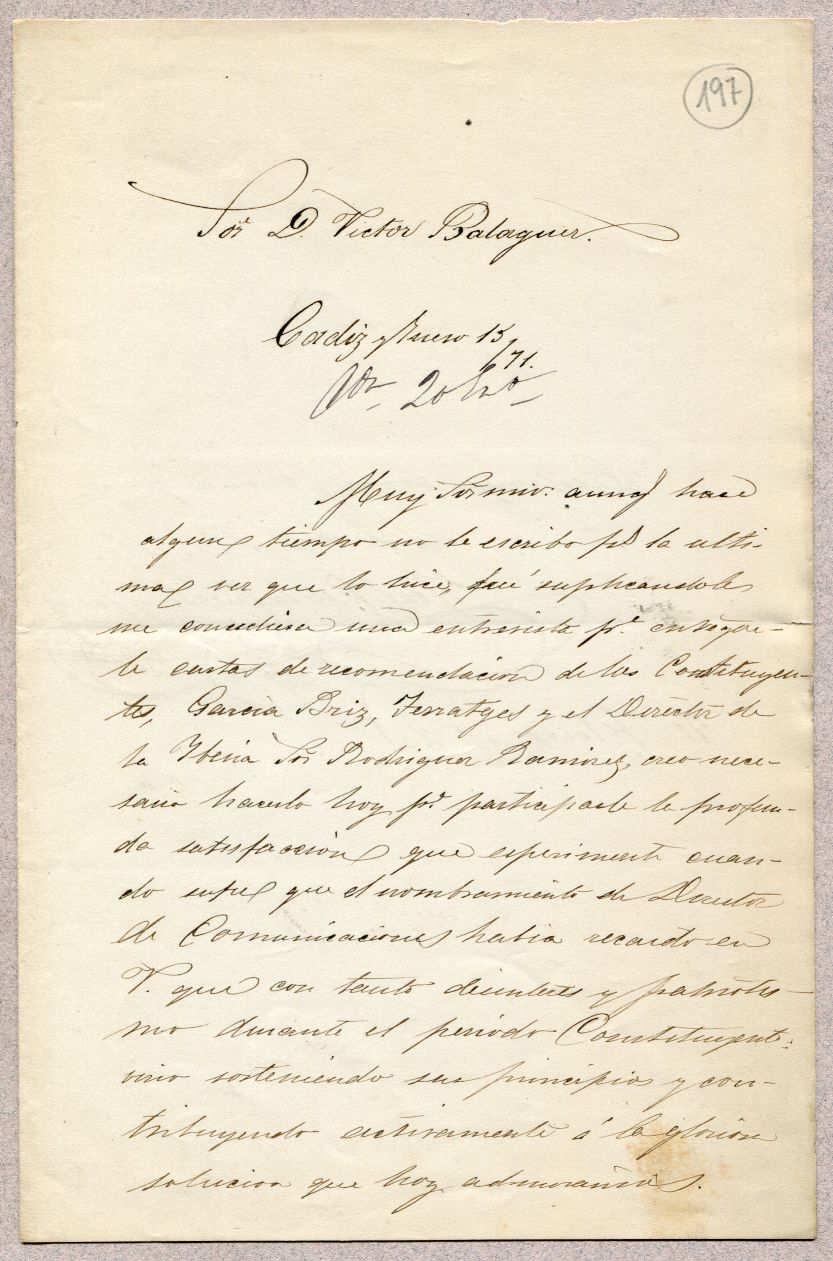 197
Sor D. Victor Balaguer.
Cadiz y Enero 13/71.
20 Eno
Muy Sor mio: aunq hace
algun tiempo no le escribo ps la ulti-
ma vez que lo hice, fué suplicandole
me concediera una entrevista pa entregar-
le cartas de recomendacion de los Constituyen-
tes, Garcia Briz, Ferratges y el Director de
la Iberia Sor Rodriguez Ramirez, creo nece-
sario hacerlo hoy pa participarle la profun-
da satisfaccion que esperimente cuan-
do supe que el nombramiento de Director
de Comunicaciones habia recaido en
V. que con tanto deinteres y patriotis-
mo durante el periodo Constituyente
vino sosteniendo sus principios y con-
tribuyendo activamente á la gloriosa
solucion que hoy admiramos.